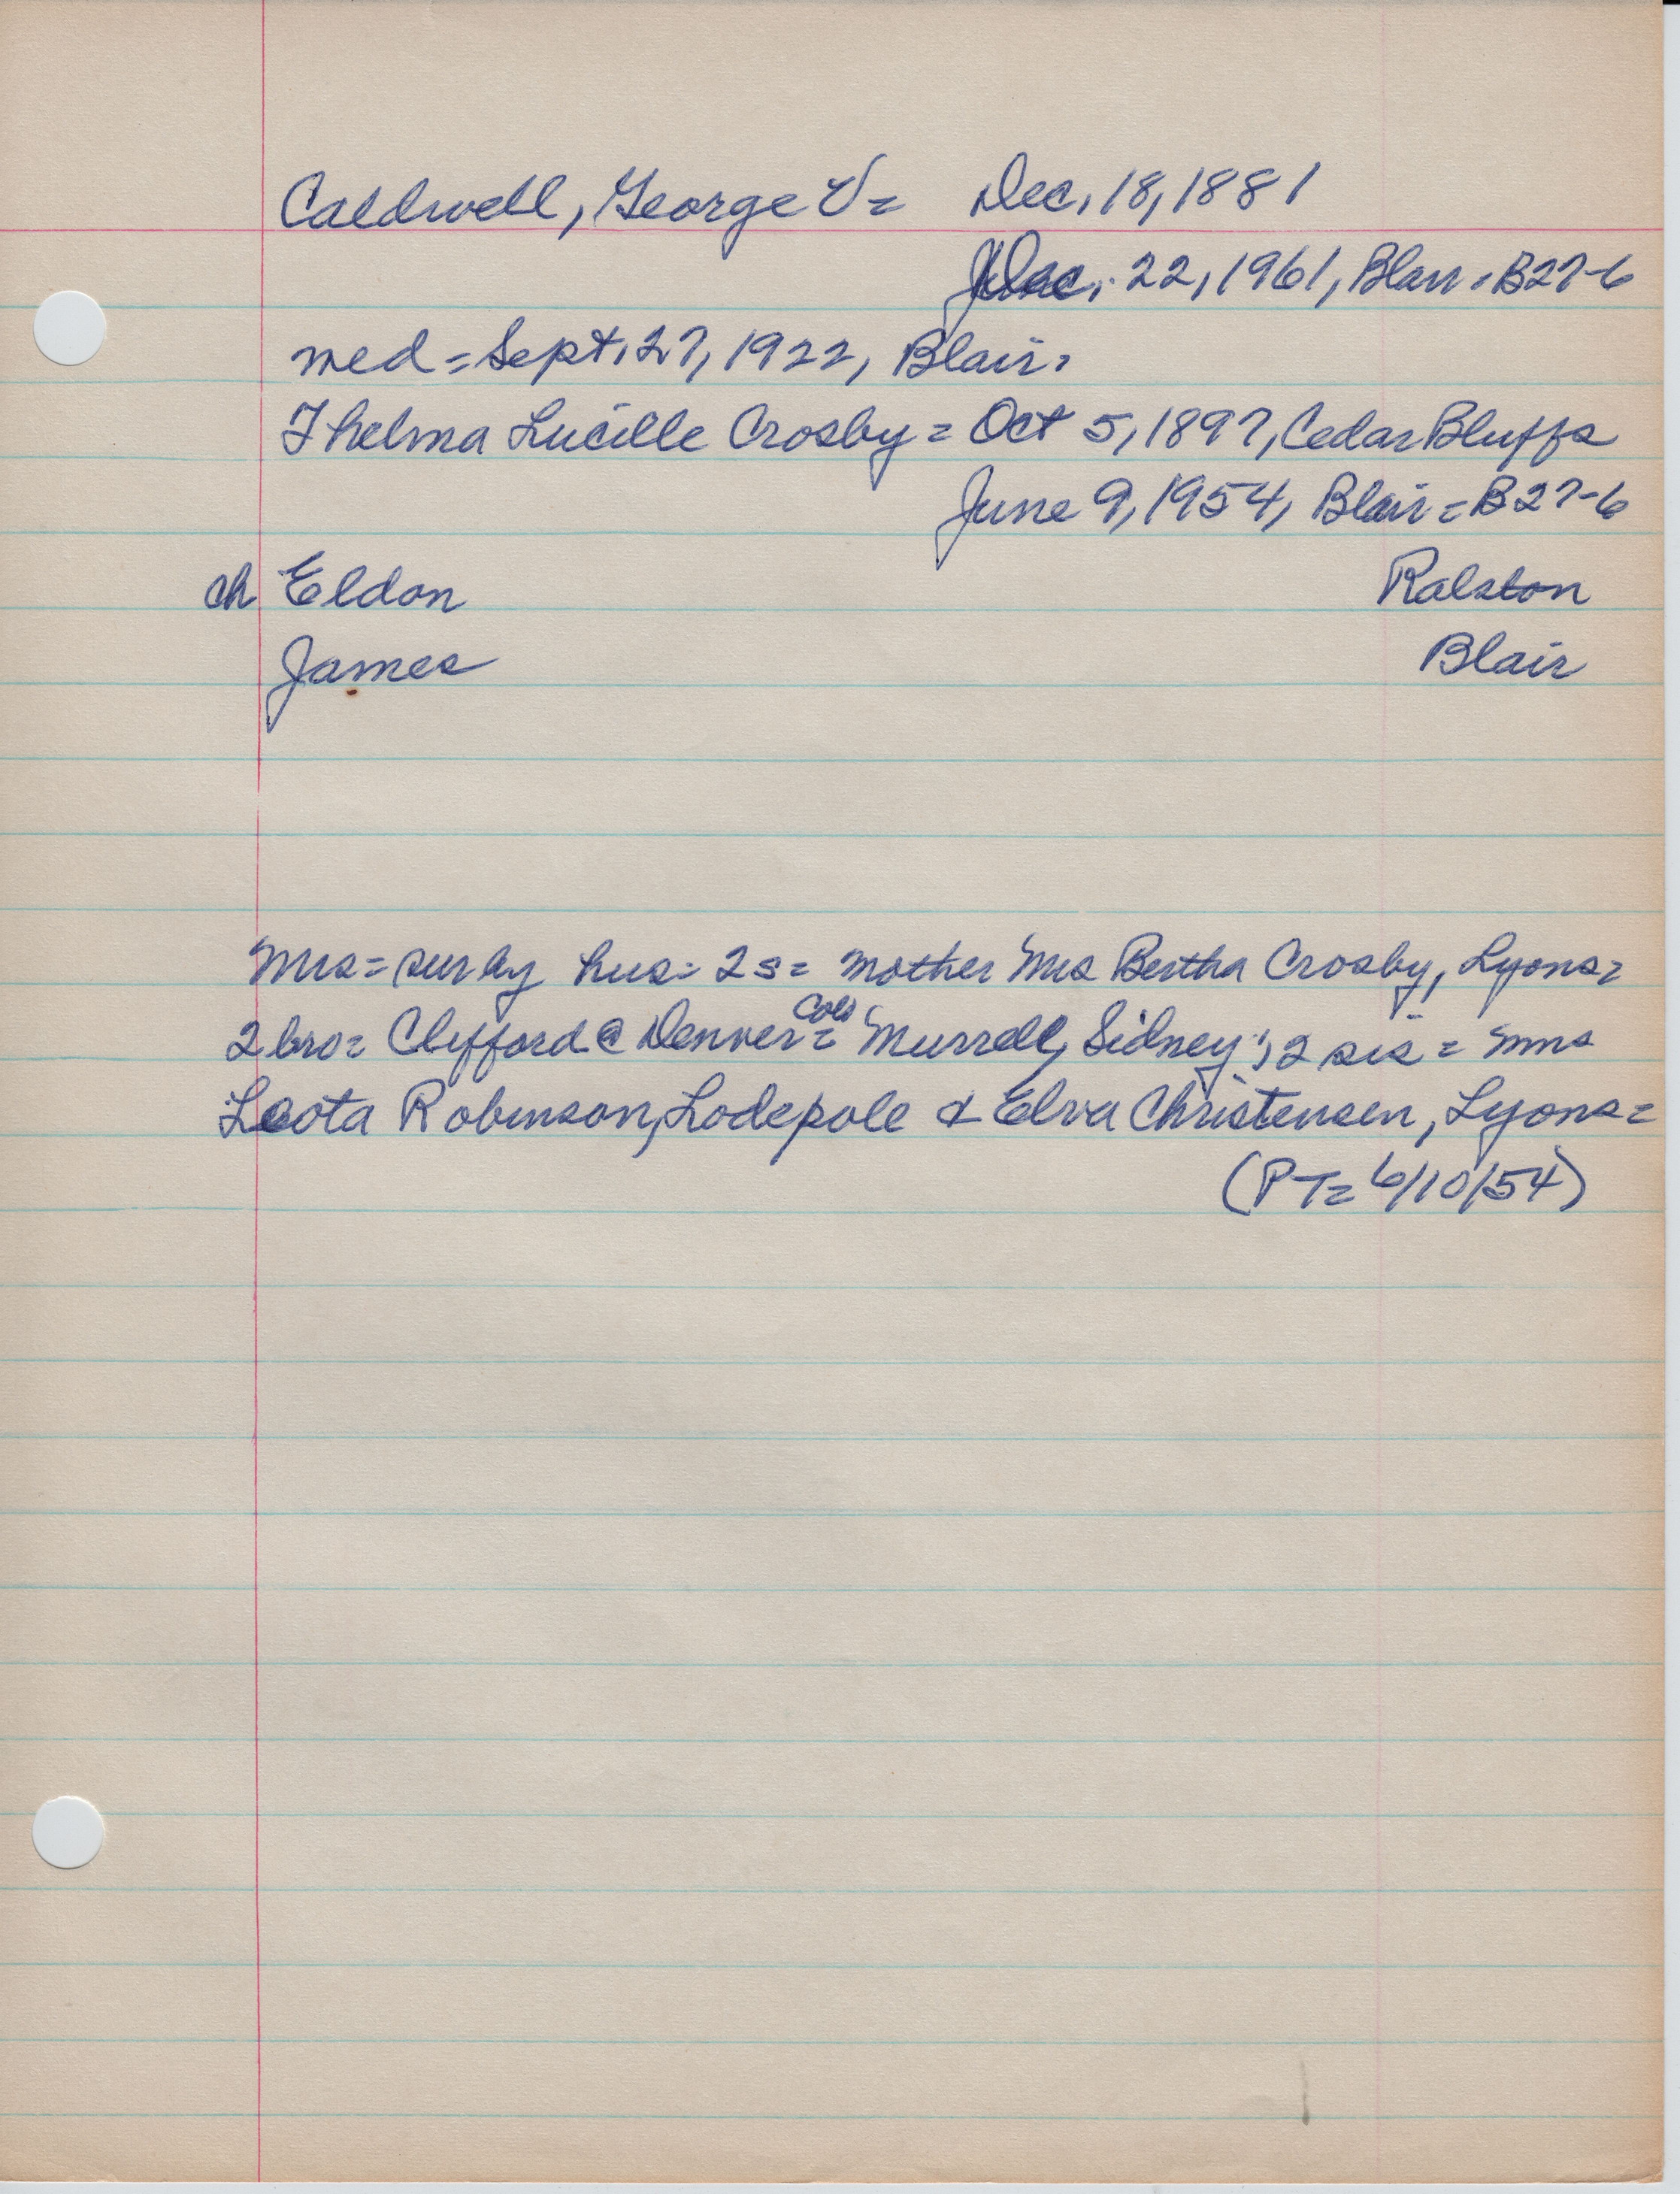 Caldwell, George V= Dec. 18, 1881
Dec. 22, 1961, Blair. B27-6
med = Sept. 27, 1922, Blair.
Thelma Lucille Crosby = Oct 5, 1897, Cedar Bluffs
June 9, 1954, Blair = B27-6
ch Eldon Ralston
James Blair
Mrs = sur by hus = 2 s = mother Mrs Bertha Crosby, Lyons =
2 bro = Clifford @ Denver Colo = Murrell, Sidney; 2 sis = Mms
Leota Robinson, Lodepole & Elva Christensen, Lyons =
(PT = 6/10/54)